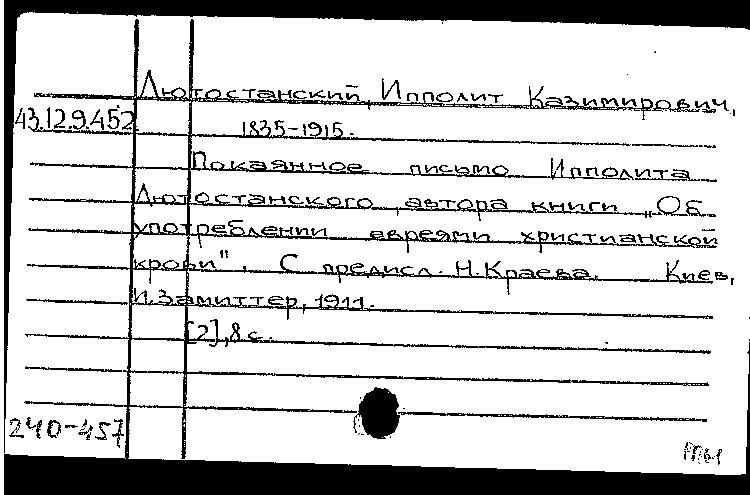 Лютостанский, Ипполит Казимирович,
43.12.9.452
1835-1915.
Покаянное письмо Ипполита
Лютостанского, автора книги „Об
употреблении евреями христианской
крови". С предисл. Н. Краева. Киев,
И. Замиттер, 1911.
[2], 8 с.
240-457